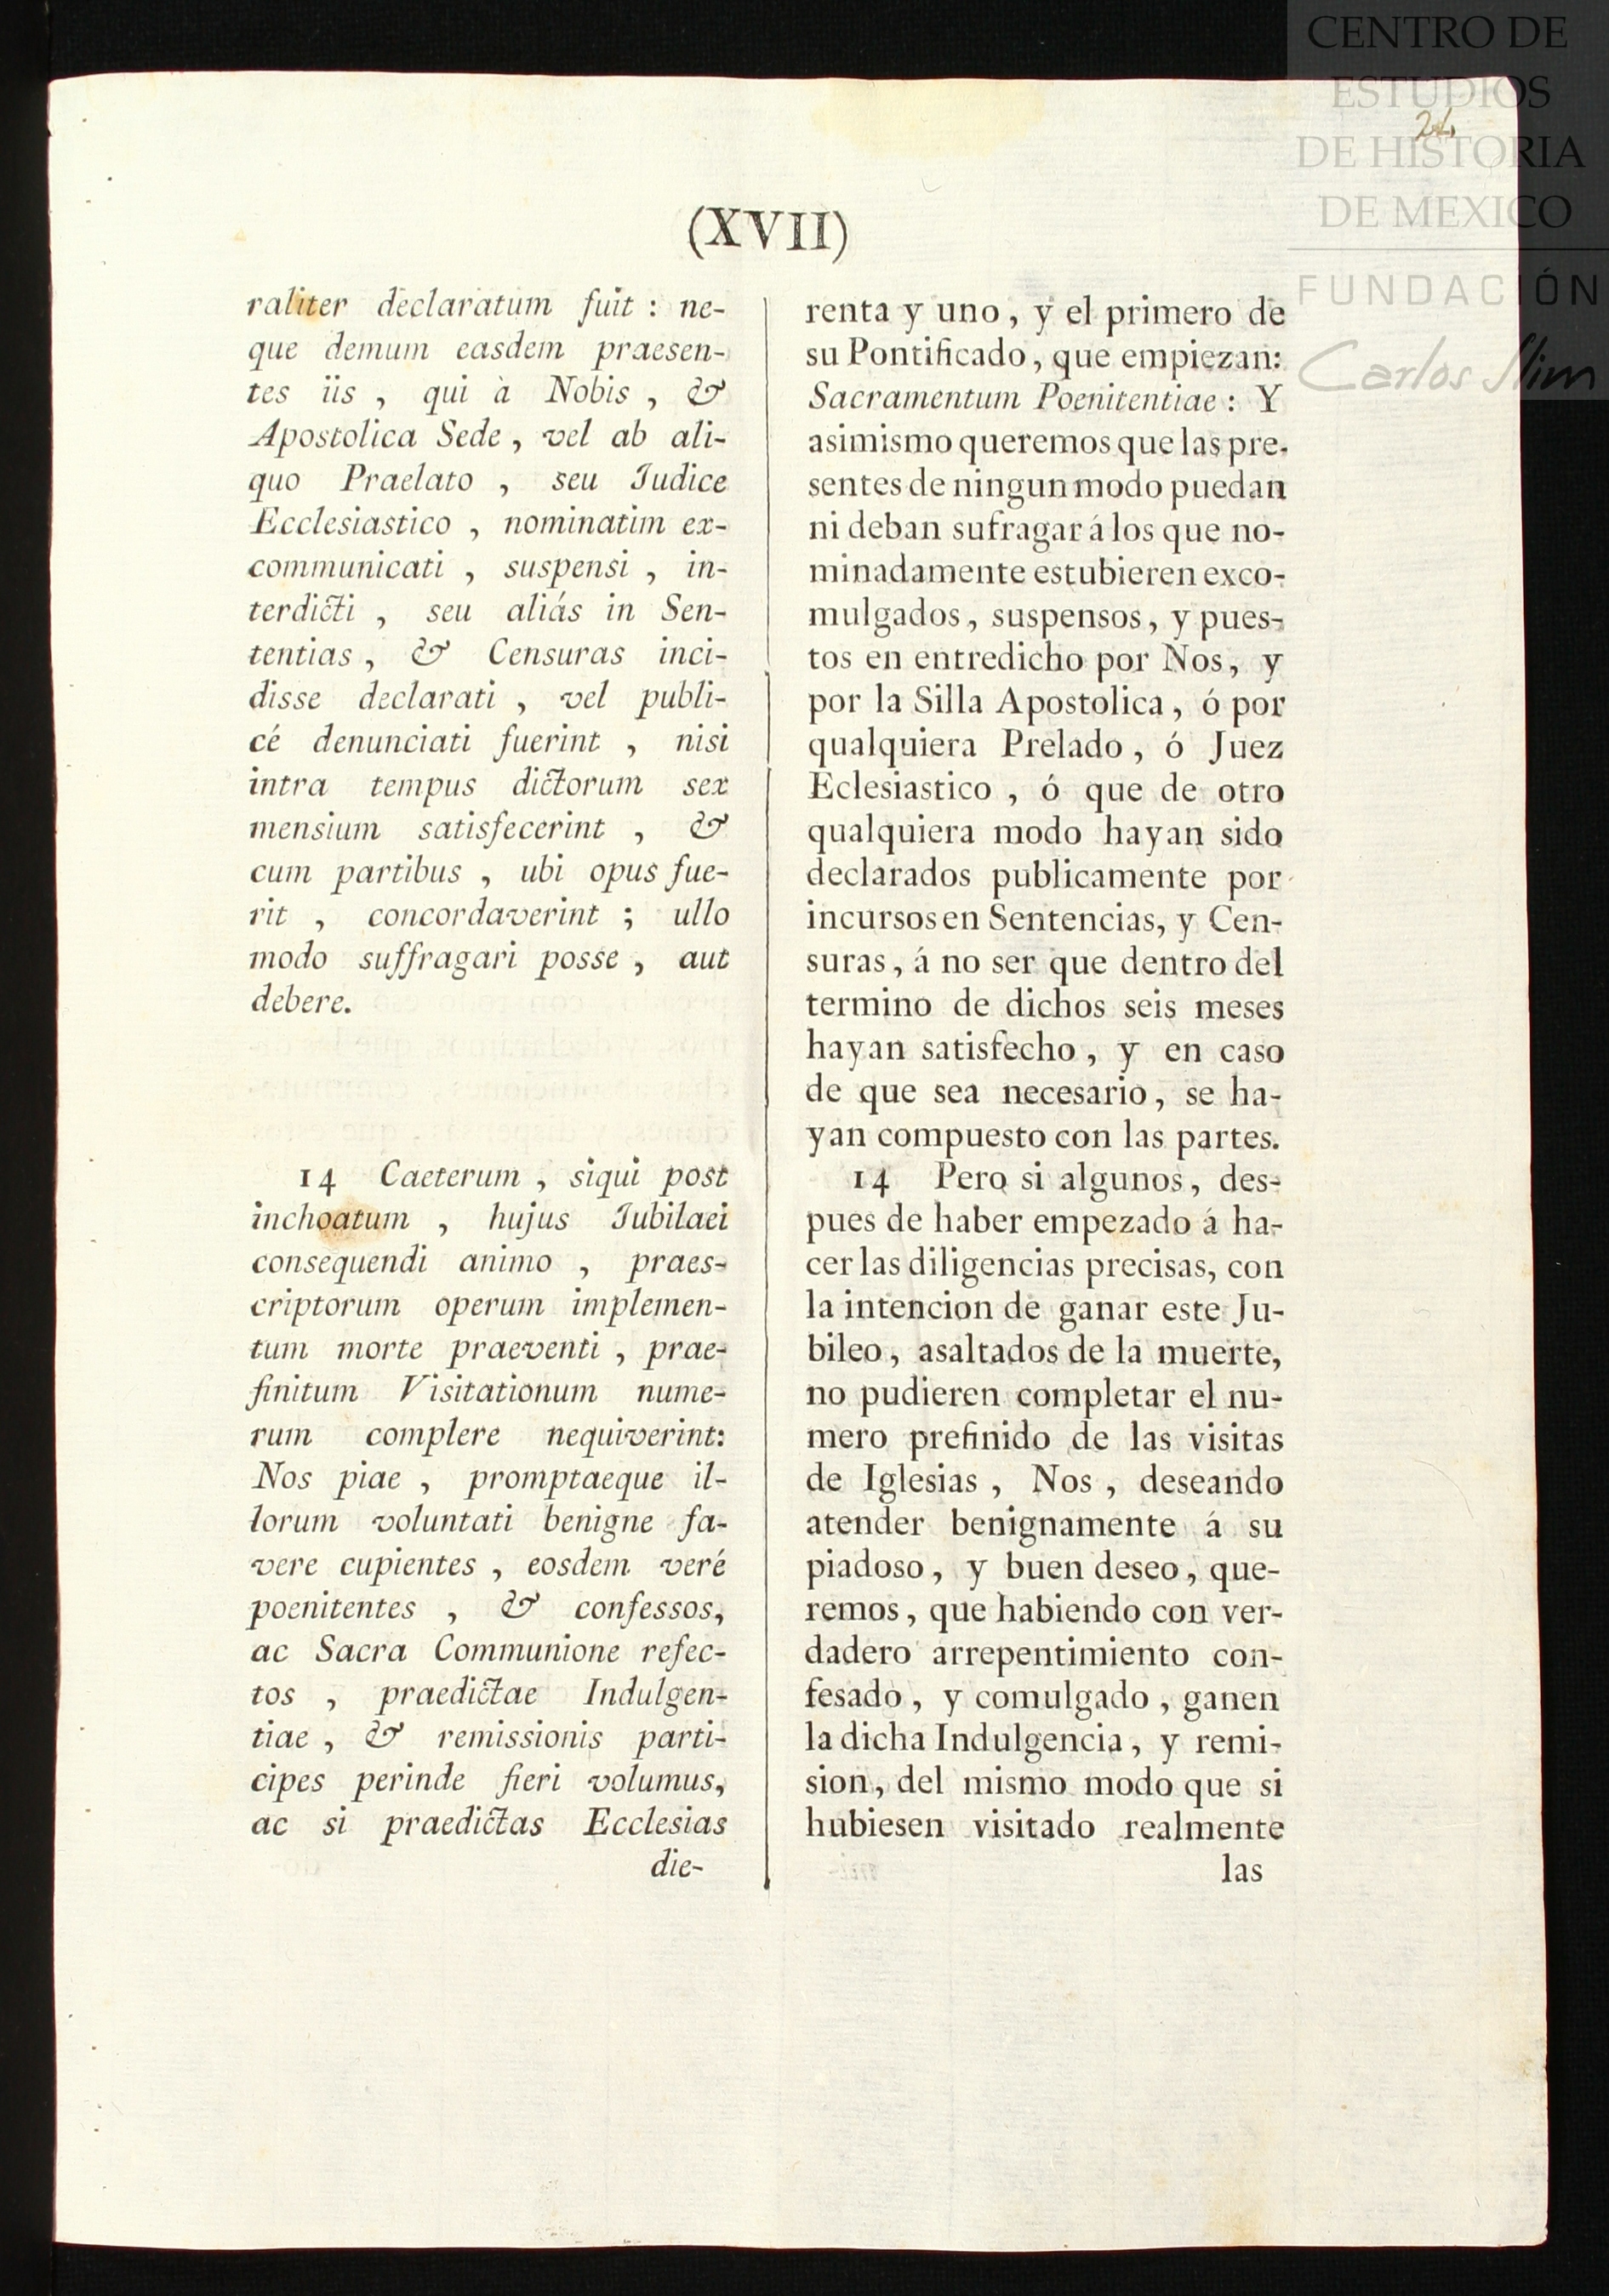 CENTRO DE
ESTUDIOS
DE HISTORIA
DE MEXICO
FUNDACIÓN
Carlos Slim
(XVII)
raliter declaratum fuit : ne-
que demum easdem praesen-
tes iis , qui à Nobis , &
Apostolica Sede , vel ab ali-
quo Praelato , seu Iudice
Ecclesiastico , nominatim ex-
communicati , suspensi , in-
terdicti , seu aliás in Sen-
tentias , & Censuras inci-
disse declarati , vel publi-
cé denunciati fuerint , nisi
intra tempus dictorum sex
mensium satisfecerint , &
cum partibus , ubi opus fue-
rit , concordaverint ; ullo
modo suffragari posse , aut
debere.
14 Caeterum , siqui post
inchoatum , hujus Iubilaei
consequendi animo , praes-
criptorum operum implemen-
tum morte praeventi , prae-
finitum Visitationum nume-
rum complere nequiverint:
Nos piae , promptaeque il-
lorum voluntati benigne fa-
vere cupientes , eosdem veré
poenitentes , & confessos,
ac Sacra Communione refec-
tos , praedictae Indulgen-
tiae , & remissionis parti-
cipes perinde fieri volumus,
ac si praedictas Ecclesias
die-
renta y uno , y el primero de
su Pontificado , que empiezan:
Sacramentum Poenitentiae : Y
asimismo queremos que las pre-
sentes de ningun modo puedan
ni deban sufragar á los que no-
minadamente estubieren exco-
mulgados , suspensos , y pues-
tos en entredicho por Nos , y
por la Silla Apostolica , ó por
qualquiera Prelado , ó Juez
Eclesiastico , ó que de otro
qualquiera modo hayan sido
declarados publicamente por
incursos en Sentencias, y Cen-
suras , á no ser que dentro del
termino de dichos seis meses
hayan satisfecho , y en caso
de que sea necesario , se ha-
yan compuesto con las partes.
14 Pero si algunos , des-
pues de haber empezado á ha-
cer las diligencias precisas, con
la intencion de ganar este Ju-
bileo , asaltados de la muerte,
no pudieren completar el nu-
mero prefinido de las visitas
de Iglesias , Nos , deseando
atender benignamente á su
piadoso , y buen deseo , que-
remos , que habiendo con ver-
dadero arrepentimiento con-
fesado , y comulgado , ganen
la dicha Indulgencia , y remi-
sion , del mismo modo que si
hubiesen visitado realmente
las